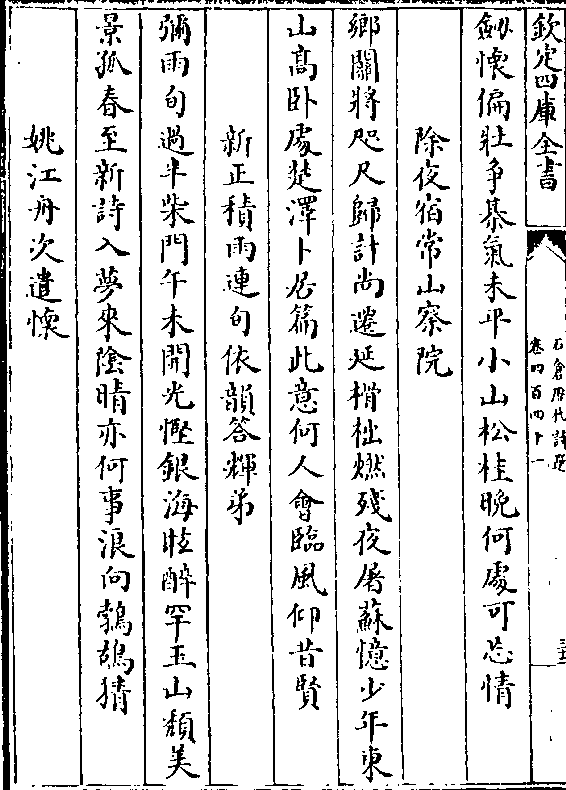 欽定四庫全書
石倉歷代詩選
卷四百四十一
劒懷偏壯爭棊氣未平小山松桂晚何處可忘情
除夜宿常山察院
鄉關將咫尺歸計尚遷延榾柮燃殘夜屠蘇憶少年東
山髙卧處楚澤卜居篇此意何人會臨風仰昔賢
新正積雨連旬依韻答輝弟
彌雨旬過半柴門午未開光慳銀海眩醉罕玉山頽美
景孤春至新詩入夢來陰晴亦何事浪向鶉鴣猜
姚江舟次遣懷